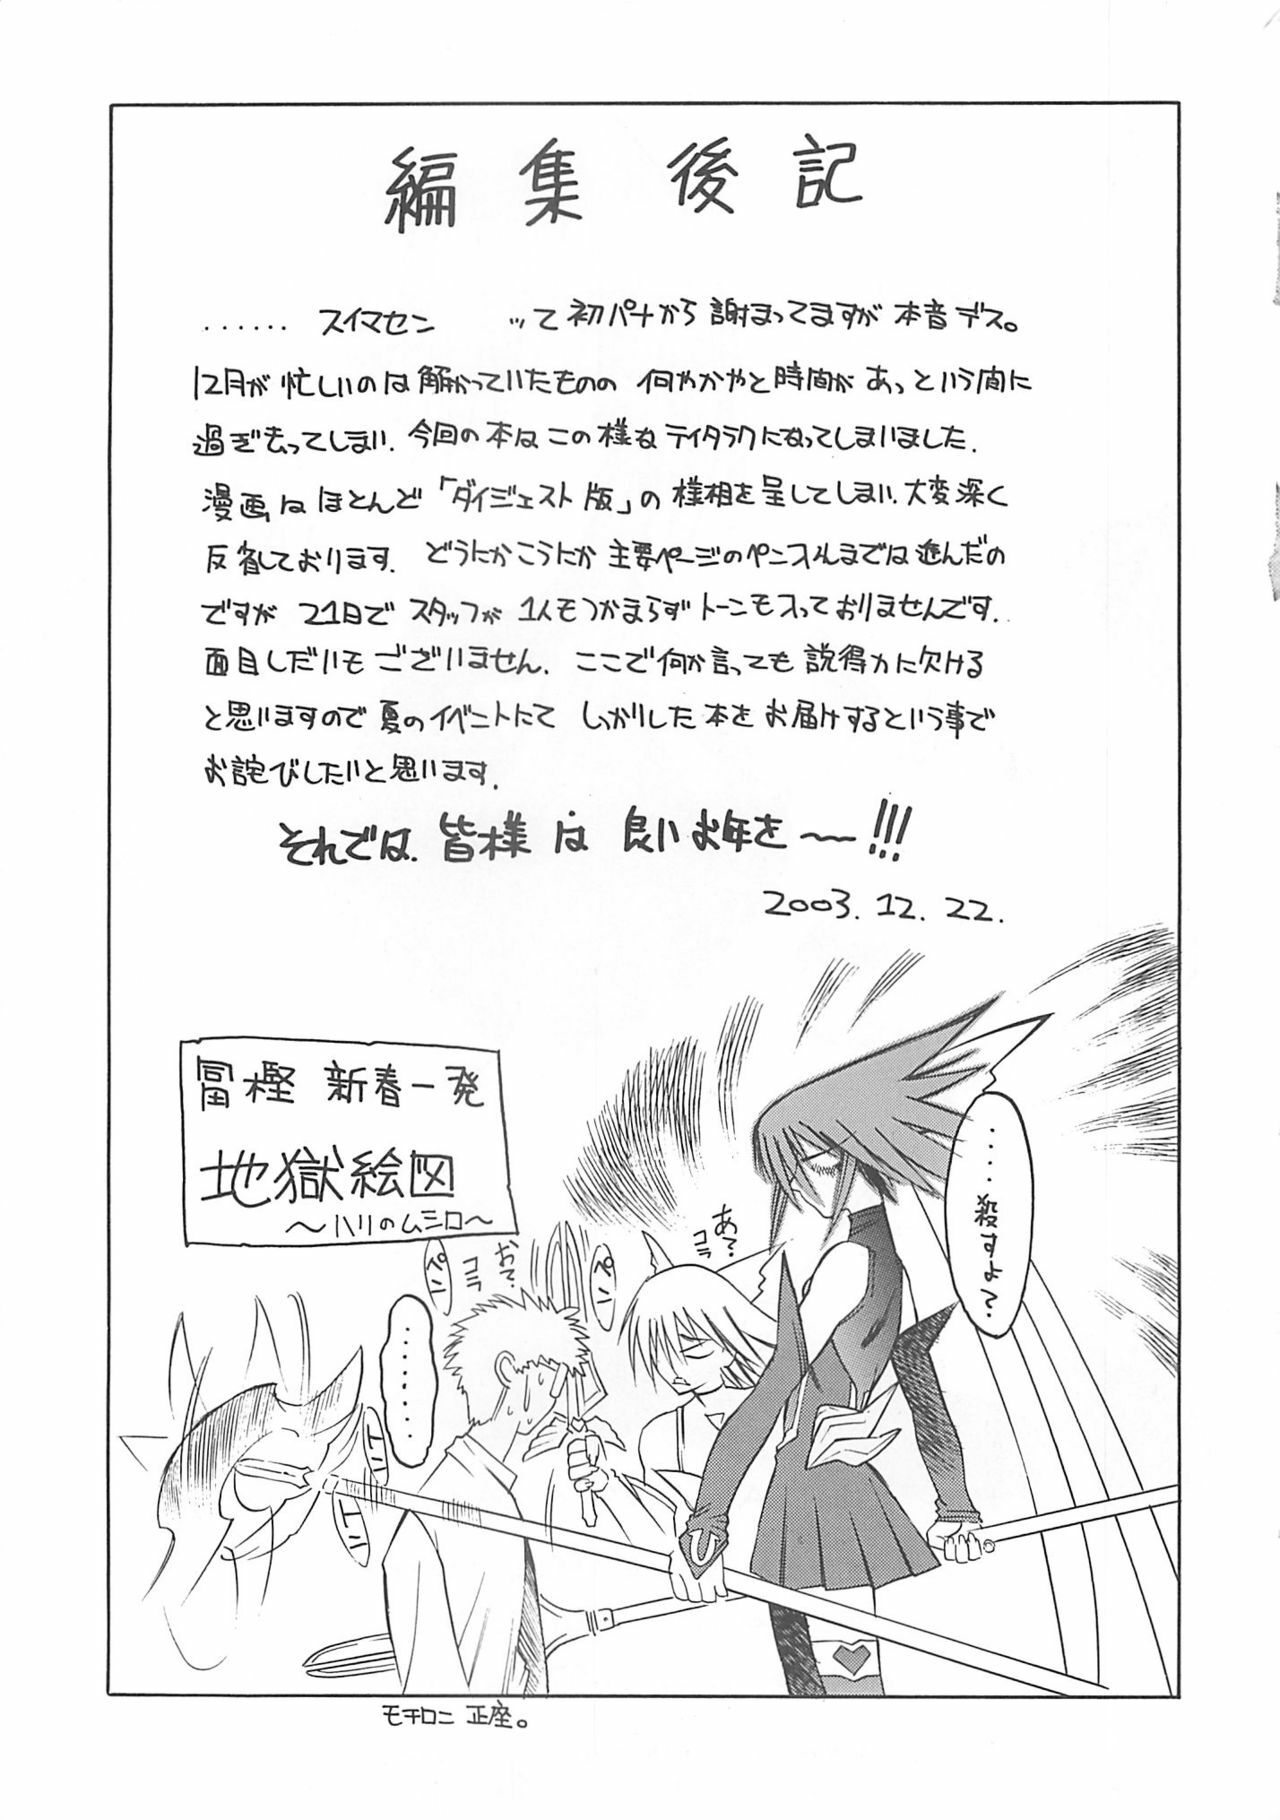 編集後記
‥‥‥ スイマセン ッて初パナから謝まってますが本音デス。
12月が忙しいのは解かっていたものの 何やかやと時間があっという間に
過ぎ去ってしまい、今回の本はこの様なテイタラクになってしまいました、
漫画はほとんど「ダイジェスト版」の様相を呈してしまい、大変深く
反省しております、どうにかこうにか主要ページのペン入れまでは進んだの
ですが 21日でスタッフが1人もつかまらずトーンも入っておりませんです、
面目しだいもございません、ここで何か言っても説得力に欠ける
と思いますので夏のイベントにて しっかりした本をお届けするという事で
お詫びしたいと思います、
それでは、皆様は良いお年を〜!!!
2003.12.22.
冨樫 新春一発
地獄絵図
〜ハリのムシロ〜
‥‥殺すよ?
あ〜?コラ
ペン
お〜?コラ
ペン
‥‥‥
トン
トン
モチロン正座。